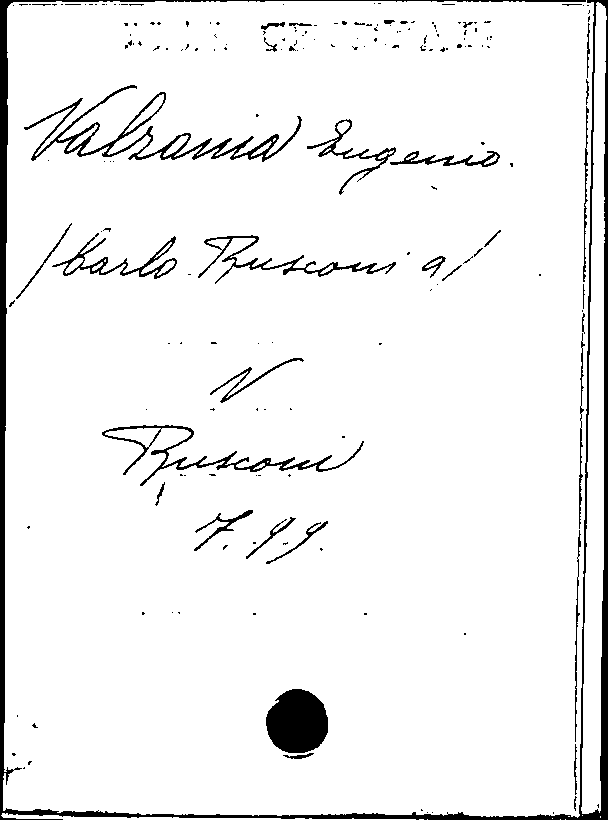 Valzania Eugenio.
/Carlo Rusconi a/
V
Rusconi
7.99.